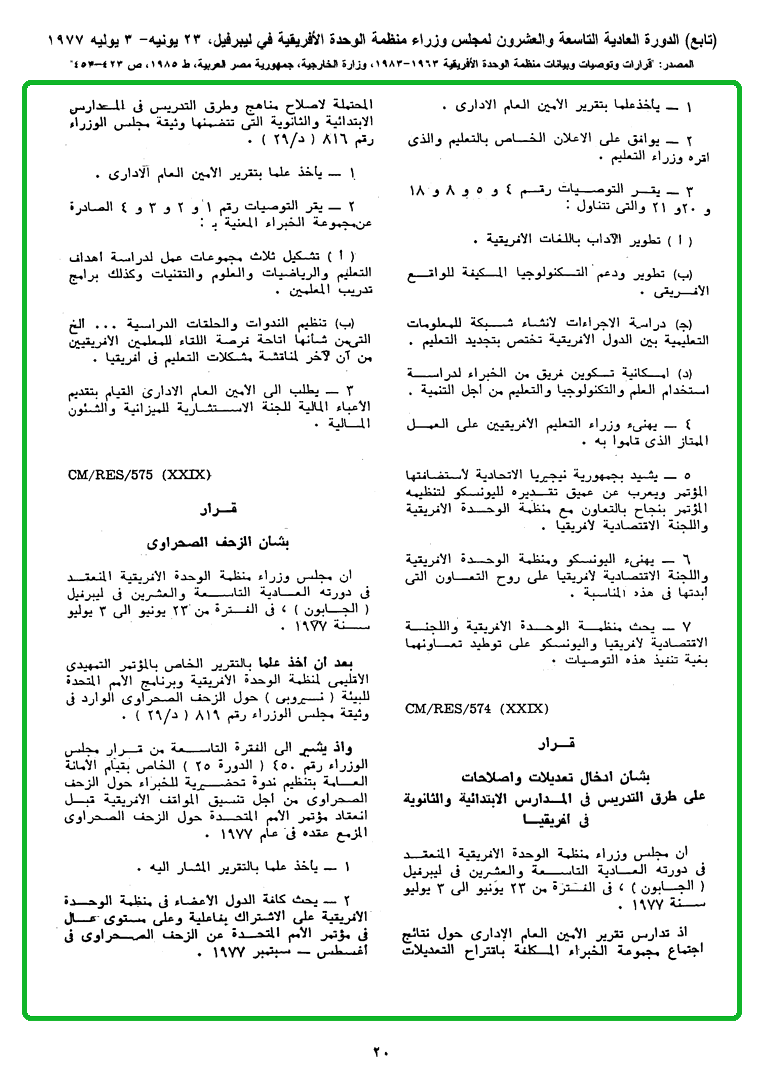 (تابع) الدورة العادية التاسعة والعشرون لمجلس وزراء منظمة الوحدة الأفريقية في ليبرفيل، ٢٣ يونيه- ٣ يوليه ١٩٧٧
المصدر: "قرارات وتوصيات وبيانات منظمة الوحدة الأفريقية ١٩٦٣-١٩٨٣، وزارة الخارجية، جمهورية مصر العربية، ط ١٩٨٥، ص ٤٢٣-٤٥٣"
١ — يأخذ علما بتقرير الأمين العام الادارى .
٢ — يوافق على الاعلان الخاص بالتعليم والذى
اقره وزراء التعليم .
٣ — يقر التوصيات رقم ٤ و ٥ و ٨ و ١٨
و ٢٠ و ٢١ والتى تتناول :
( أ ) تطوير الآداب باللغات الأفريقية .
(ب) تطوير ودعم التكنولوجيا المكيفة للواقع
الأفريقى .
(ج) دراسة الاجراءات لانشاء شبكة للمعلومات
التعليمية بين الدول الأفريقية تختص بتجديد التعليم .
(د) امكانية تكوين فريق من الخبراء لدراسة
استخدام العلم والتكنولوجيا والتعليم من أجل التنمية .
٤ — يهنىء وزراء التعليم الأفريقيين على العمل
الممتاز الذى قاموا به .
٥ — يشيد بجمهورية نيجيريا الاتحادية لاستضافتها
المؤتمر ويعرب عن عميق تقديره لليونسكو لتنظيمه
المؤتمر بنجاح بالتعاون مع منظمة الوحدة الأفريقية
واللجنة الاقتصادية لأفريقيا .
٦ — يهنىء اليونسكو ومنظمة الوحدة الأفريقية
واللجنة الاقتصادية لأفريقيا على روح التعاون التى
أبدتها فى هذه المناسبة .
٧ — يحث منظمة الوحدة الأفريقية واللجنة
الاقتصادية لأفريقيا واليونسكو على توطيد تعاونهما
بغية تنفيذ هذه التوصيات .
CM/RES/574 (XXIX)
قرار
بشأن ادخال تعديلات واصلاحات
على طرق التدريس فى المدارس الابتدائية والثانوية
فى افريقيا
أن مجلس وزراء منظمة الوحدة الأفريقية المنعقد
فى دورته العادية التاسعة والعشرين فى ليبرفيل
( الجابون ) ، فى الفترة من ٢٣ يونيو الى ٣ يوليو
سنة ١٩٧٧ .
اذ تدارس تقرير الأمين العام الإدارى حول نتائج
اجتماع مجموعة الخبراء المكلفة باقتراح التعديلات
المحتملة لاصلاح مناهج وطرق التدريس فى المدارس
الابتدائية والثانوية التى تتضمنها وثيقة مجلس الوزراء
رقم ٨١٦ ( د/٢٩ ) .
١ — يأخذ علما بتقرير الأمين العام الادارى .
٢ — يقر التوصيات رقم ١ و ٢ و ٣ و ٤ الصادرة
عن مجموعة الخبراء المعنية بـ :
( أ ) تشكيل ثلاث مجموعات عمل لدراسة أهداف
التعليم والرياضيات والعلوم والتقنيات وكذلك برامج
تدريب المعلمين .
(ب) تنظيم الندوات والحلقات الدراسية ... الخ
التى من شأنها اتاحة فرصة اللقاء للمعلمين الأفريقيين
من آن لآخر لمناقشة مشكلات التعليم فى افريقيا .
٣ — يطلب الى الأمين العام الادارى القيام بتقديم
الأعباء المالية للجنة الاستشارية للميزانية والشئون
المالية .
CM/RES/575 (XXIX)
قرار
بشأن الزحف الصحراوى
ان مجلس وزراء منظمة الوحدة الأفريقية المنعقد
فى دورته العادية التاسعة والعشرين فى ليبرفيل
( الجابون ) ، فى الفترة من ٢٣ يونيو الى ٣ يوليو
سنة ١٩٧٧ .
بعد أن أخذ علما بالتقرير الخاص بالمؤتمر التمهيدى
الاقليمى لمنظمة الوحدة الأفريقية وبرنامج الأمم المتحدة
للبيئة ( نيروبى ) حول الزحف الصحراوى الوارد فى
وثيقة مجلس الوزراء رقم ٨١٩ ( د/٢٩ ) .
واذ يشير الى الفقرة التاسعة من قرار مجلس
الوزراء رقم ٤٥٠ ( الدورة ٢٥ ) الخاص بقيام الأمانة
العامة بتنظيم ندوة تحضيرية للخبراء حول الزحف
الصحراوى من أجل تنسيق المواقف الأفريقية قبل
انعقاد مؤتمر الأمم المتحدة حول الزحف الصحراوى
المزمع عقده فى عام ١٩٧٧ .
١ — يأخذ علما بالتقرير المشار اليه .
٢ — يحث كافة الدول الأعضاء فى منظمة الوحدة
الأفريقية على الاشتراك بفاعلية وعلى مستوى عال
فى مؤتمر الأمم المتحدة عن الزحف الصحراوى فى
أغسطس — سبتمبر ١٩٧٧ .
٢٠